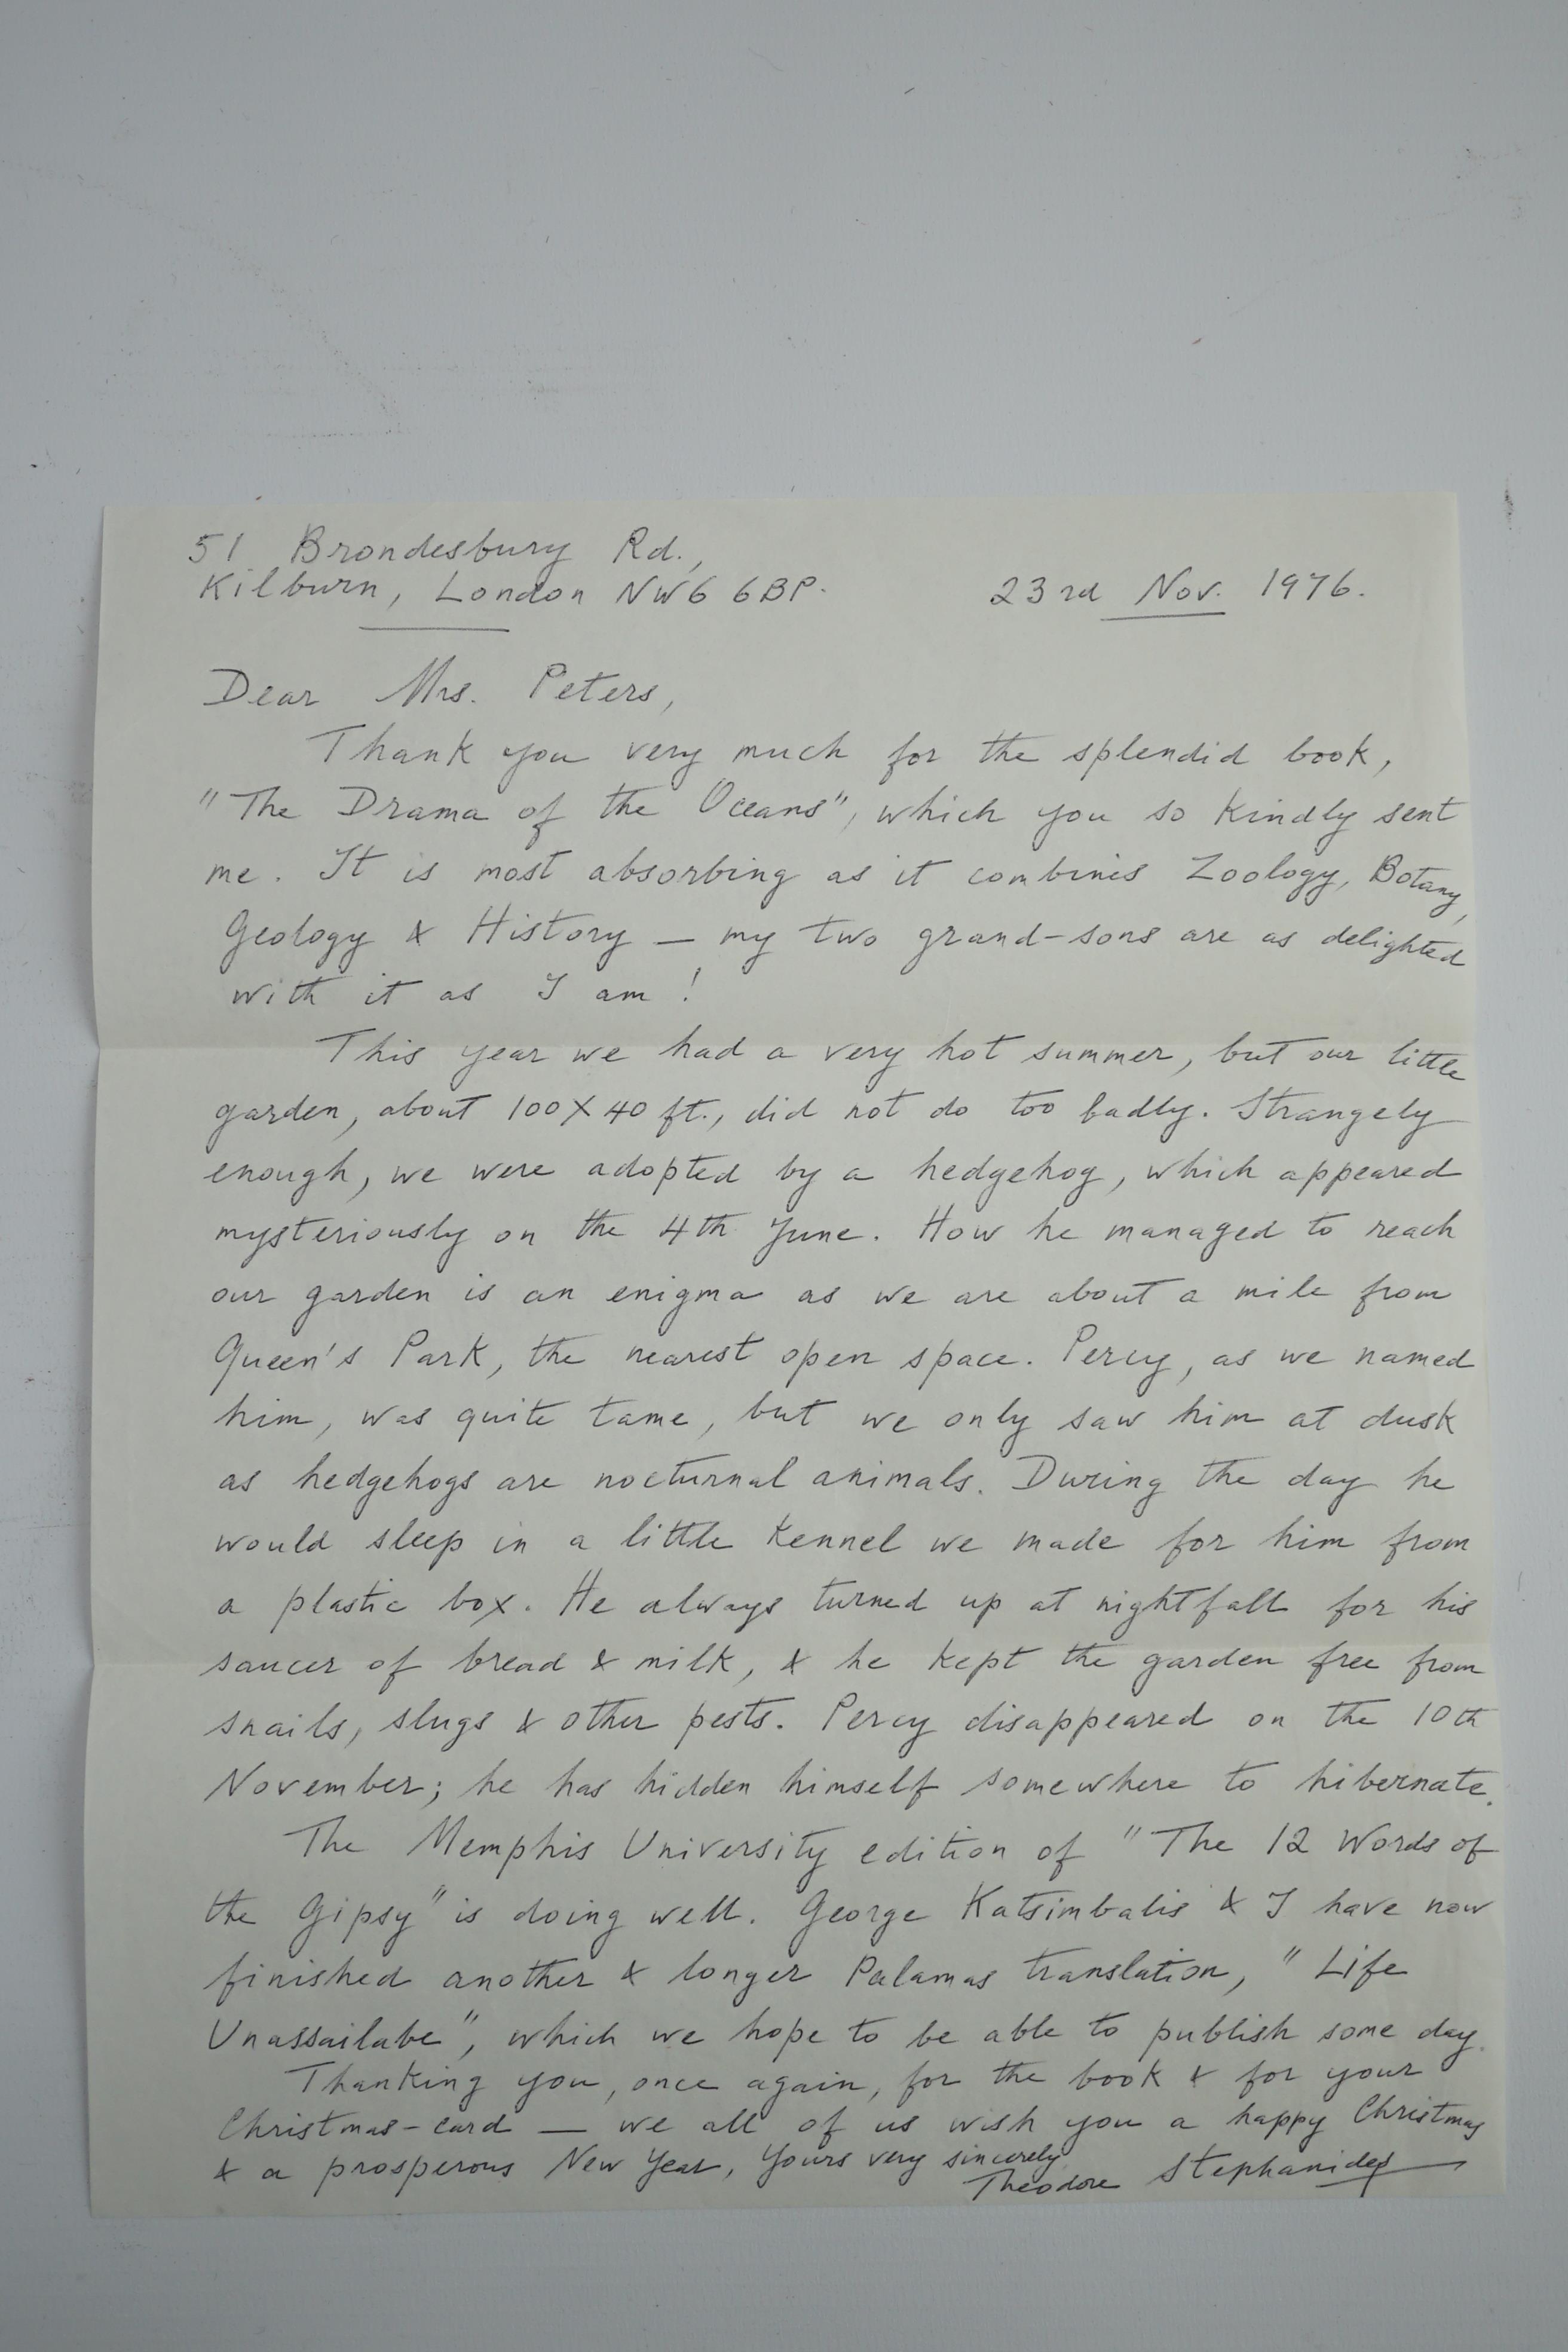 51 Brondesbury Rd.,
Kilburn, London NW6 6BP.
23rd Nov. 1976.
Dear Mrs. Peters,
Thank you very much for the splendid book,
"The Drama of the Oceans", which you so kindly sent
me. It is most absorbing as it combines Zoology, Botany,
Geology & History — my two grand-sons are as delighted
with it as I am!
This year we had a very hot summer, but our little
garden, about 100X40 ft., did not do too badly. Strangely
enough, we were adopted by a hedgehog, which appeared
mysteriously on the 4th June. How he managed to reach
our garden is an enigma as we are about a mile from
Queen's Park, the nearest open space. Percy, as we named
him, was quite tame, but we only saw him at dusk
as hedgehogs are nocturnal animals. During the day he
would sleep in a little kennel we made for him from
a plastic box. He always turned up at nightfall for his
saucer of bread & milk, & he kept the garden free from
snails, slugs & other pests. Percy disappeared on the 10th
November; he has hidden himself somewhere to hibernate.
The Memphis University edition of "The 12 Words of
the Gipsy" is doing well. George Katsimbalis & I have now
finished another & longer Palamas translation, "Life
Unassailabe", which we hope to be able to publish some day.
Thanking you, once again, for the book & for your
Christmas-card — we all of us wish you a happy Christmas
& a prosperous New Year, Yours very sincerely
Theodore Stephanides